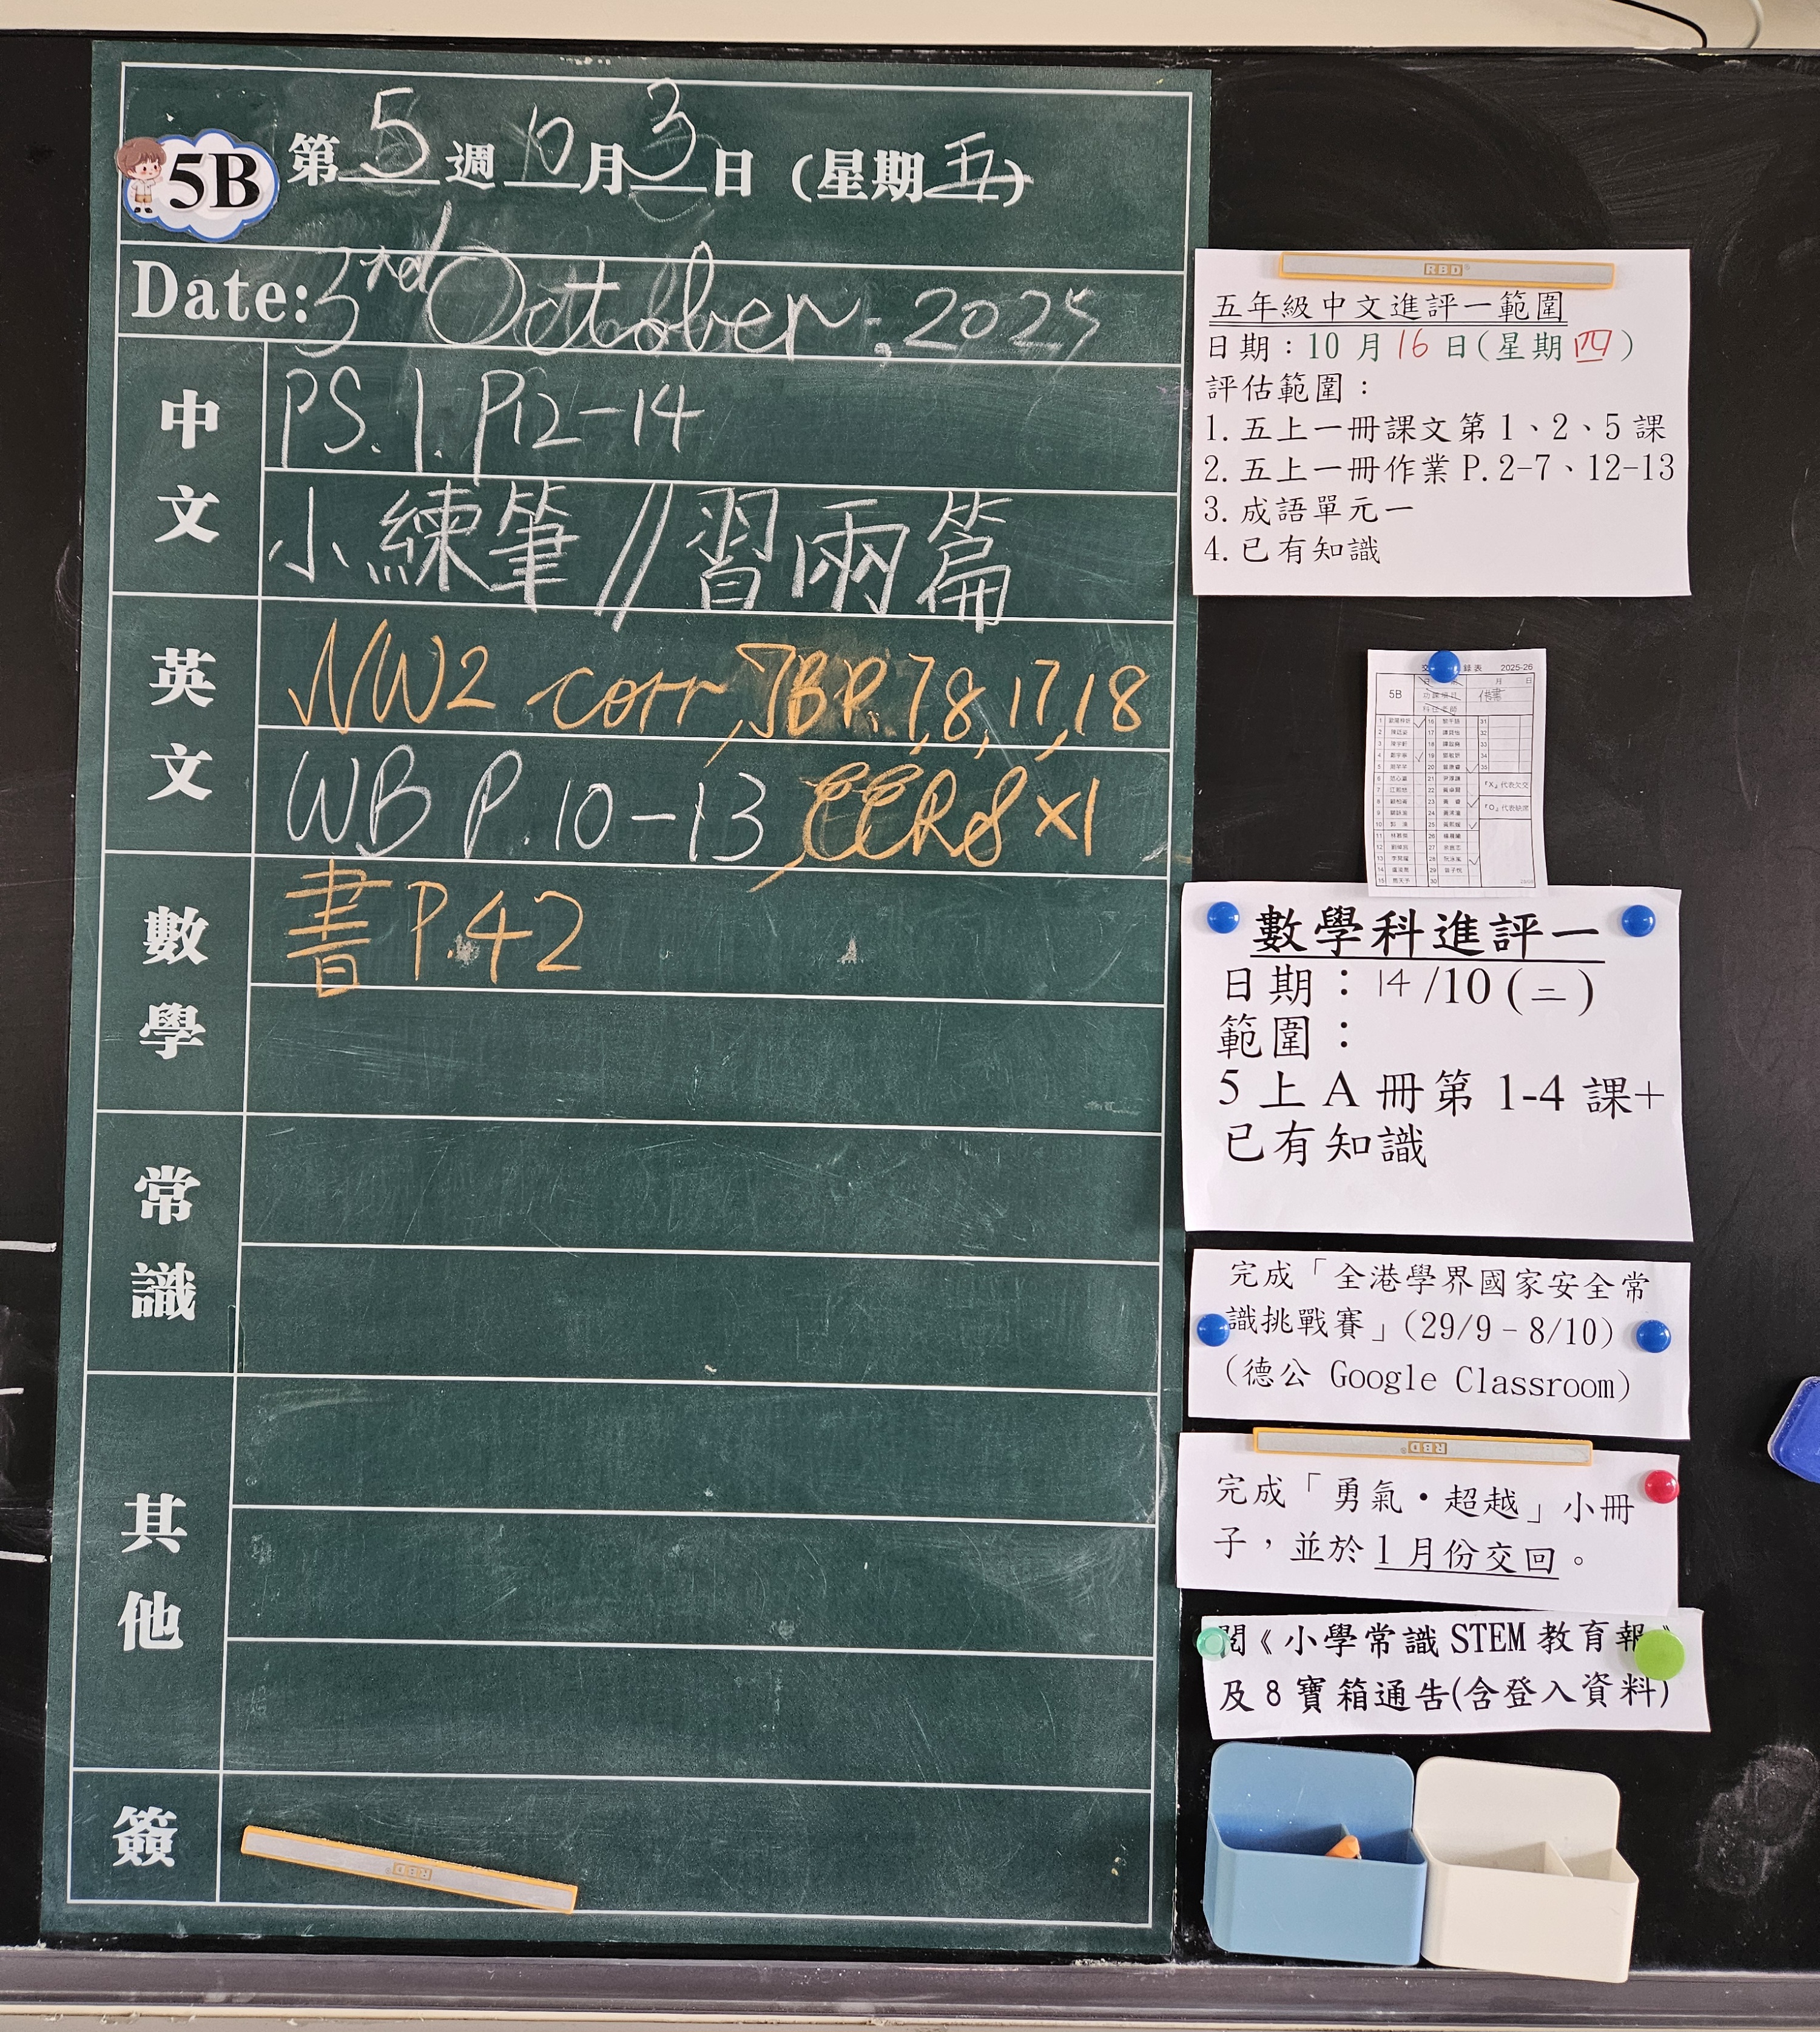 5B 第5週10月3日 (星期五)
Date: 3rd October, 2025
中文
PS.1. P12-14
小練筆//習兩篇
英文
NW2 corr, JBP. 7,8,17,18
WB P.10-13, EERS x1
數學
書P.42
常識
其他
簽
RBD
RBD
五年級中文進評一範圍
日期：10月16日(星期四)
評估範圍：
1. 五上一冊課文第1、2、5課
2. 五上一冊作業 P.2-7、12-13
3. 成語單元一
4. 已有知識
錄表 2025-26
5B
月 日
「X」代表欠交
「O」代表缺席
數學科進評一
日期：14/10(二)
範圍：
5上A冊第1-4課+
已有知識
完成「全港學界國家安全常
識挑戰賽」(29/9-8/10)
(德公 Google Classroom)
RBD
完成「勇氣・超越」小冊
子，並於1月份交回。
閱《小學常識STEM教育報》
及8寶箱通告(含登入資料)